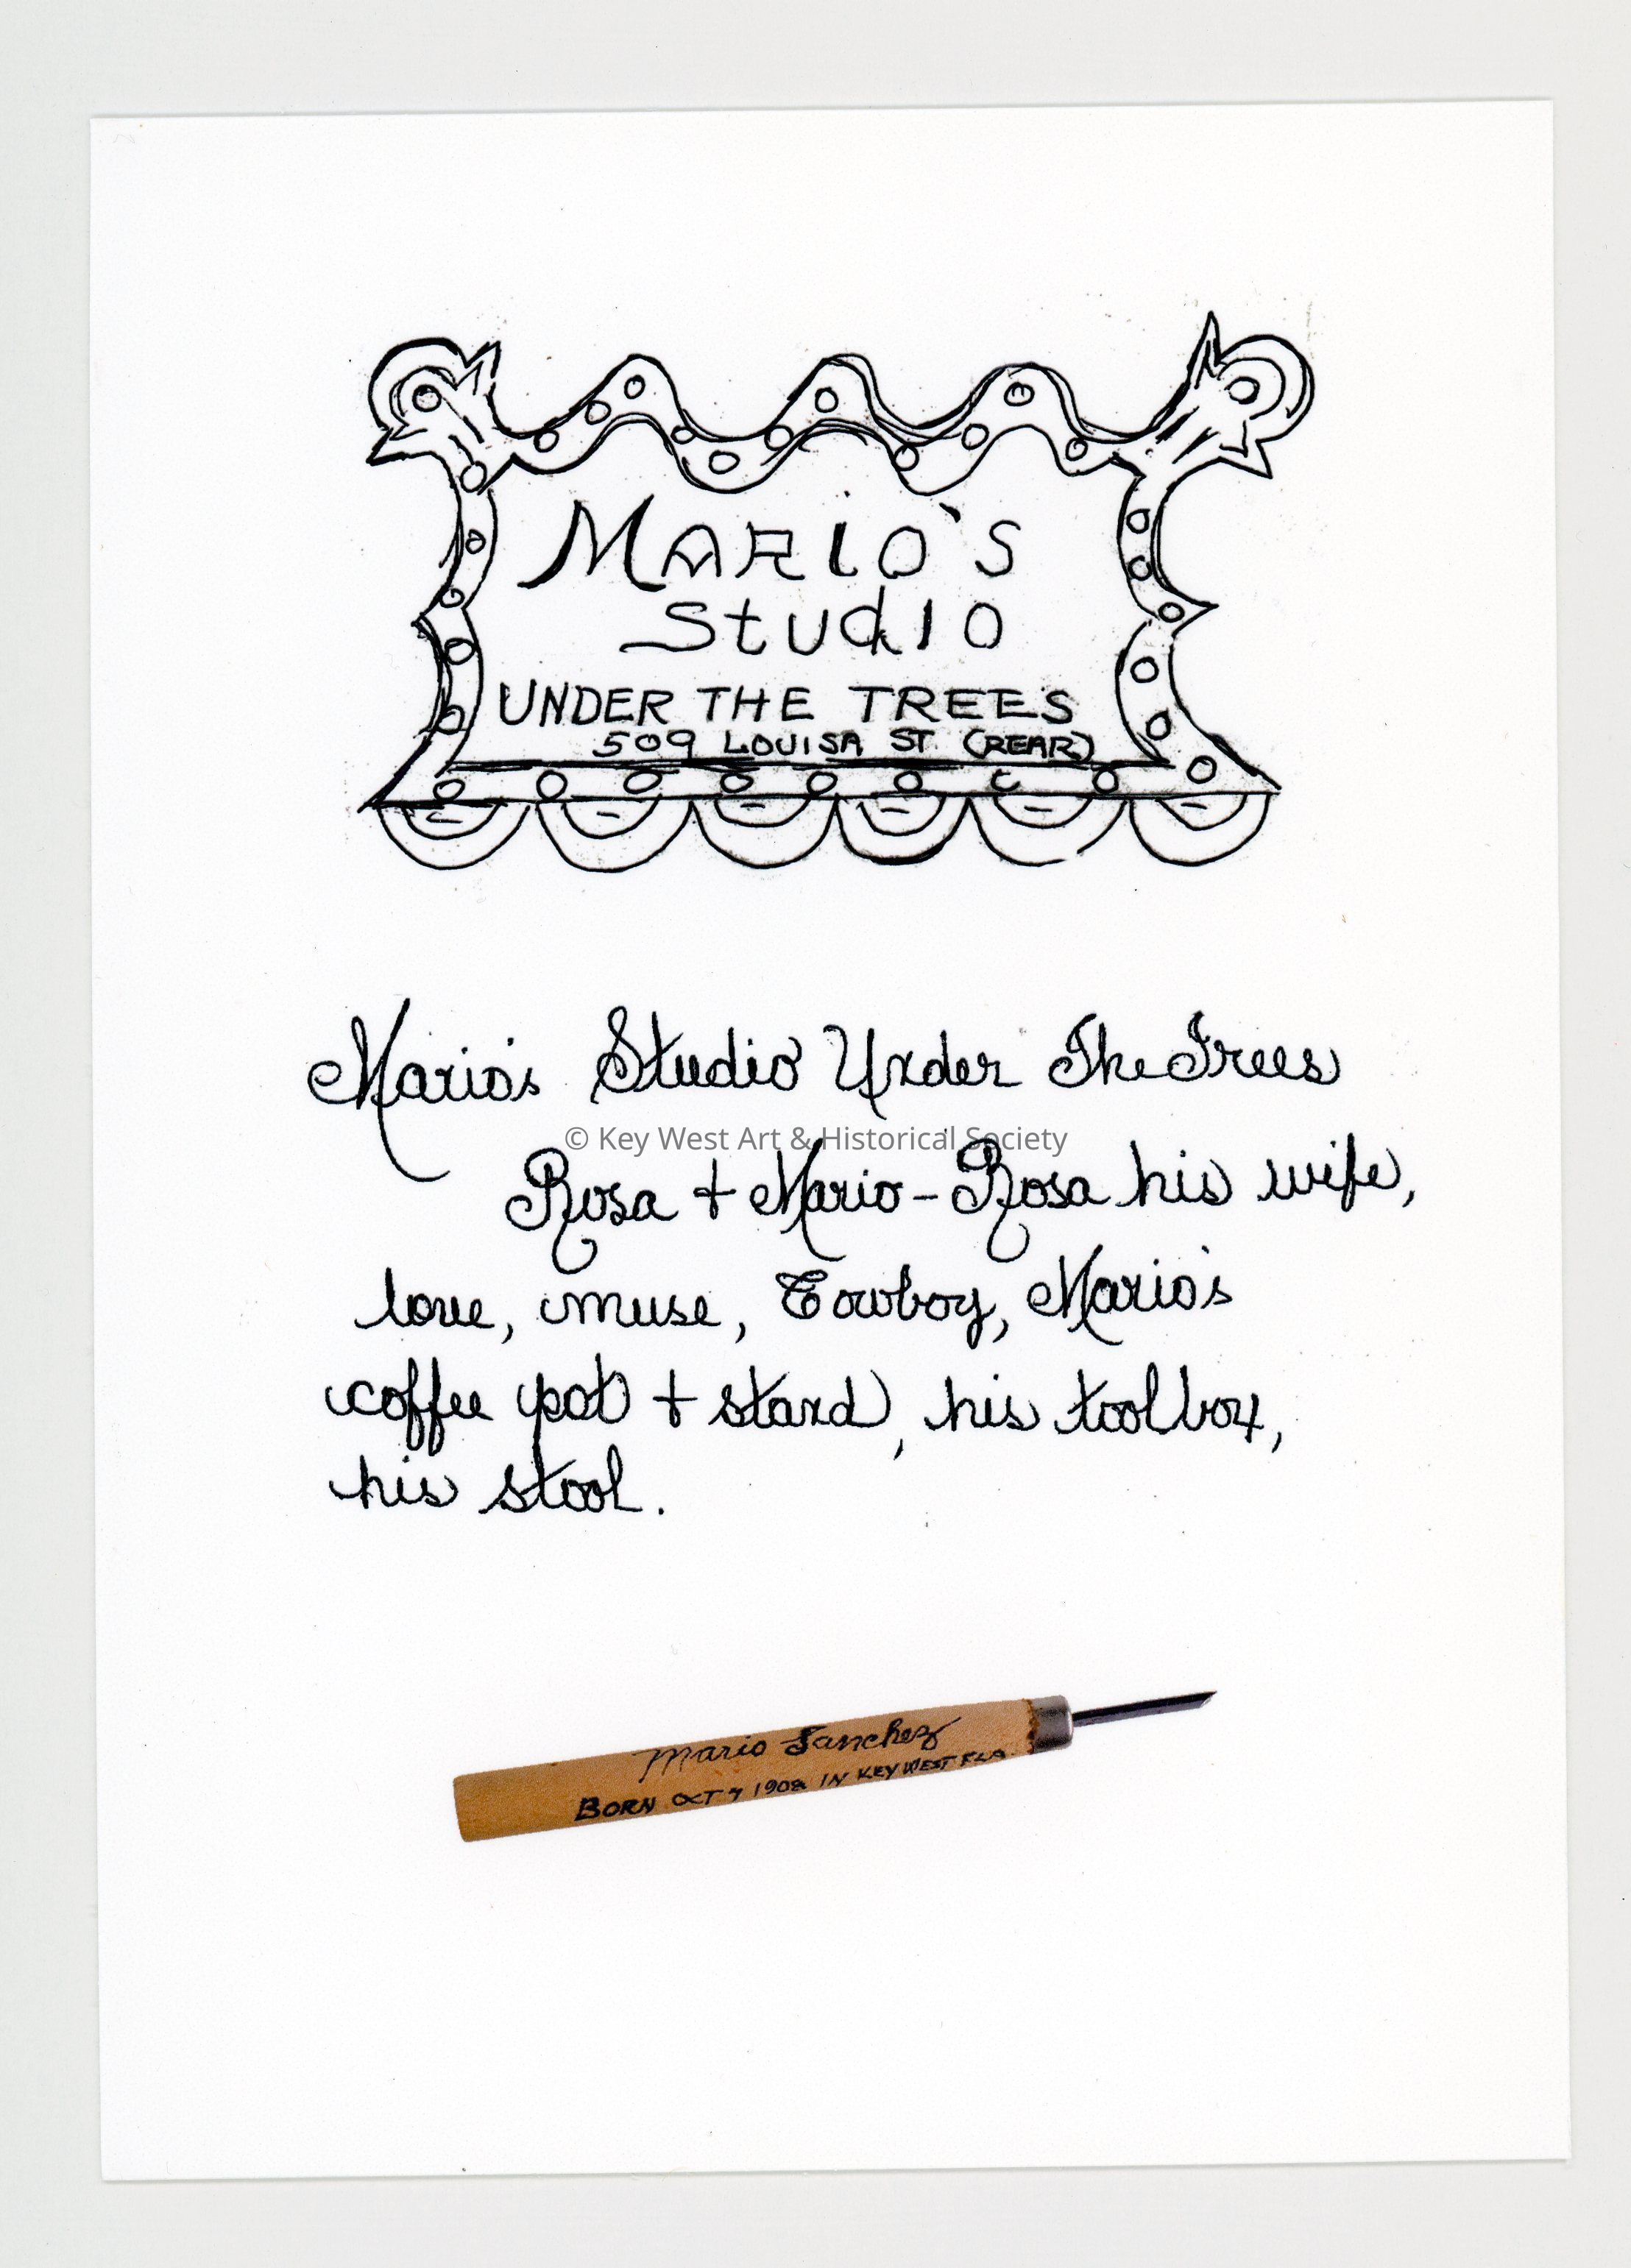 Mario's
Studio
UNDER THE TREES
509 LOUISA ST (REAR)
Mario's Studio Under The Trees
© Key West Art & Historical Society
Rosa + Mario - Rosa his wife,
love, muse, Cowboy, Mario's
coffee pot + stand, his toolbox,
his stool.
Mario Sanchez
BORN OCT 7 1908 IN KEY WEST FLA.